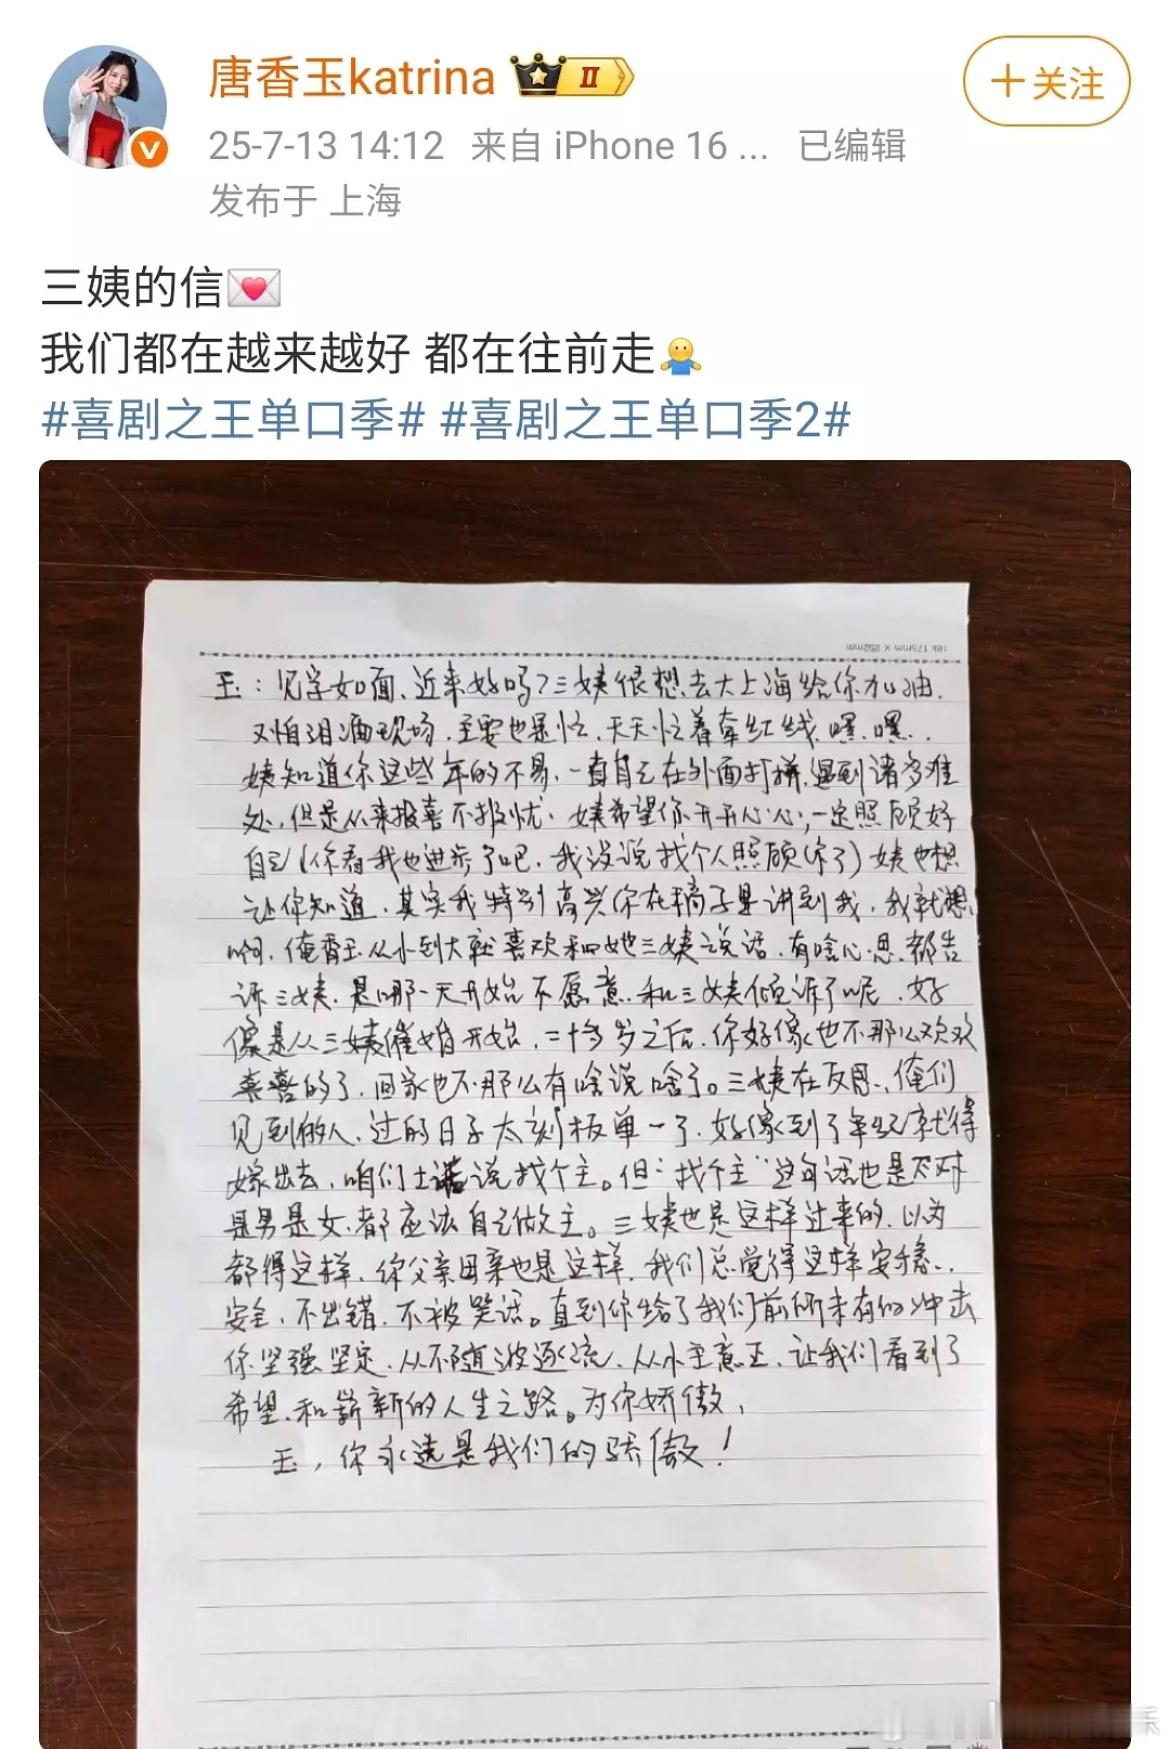 唐香玉katrina II
+关注
25-7-13 14:12 来自 iPhone 16 ... 已编辑
发布于 上海
三姨的信💌
我们都在越来越好 都在往前走🤷
#喜剧之王单口季# #喜剧之王单口季2#
16k 175mm X 252mm
玉：见字如面、近来好吗？三姨很想去大上海给你加油.
又怕泪洒现场，主要也是忙、天天忙着牵红线、嘿、嘿..
姨知道你这些年的不易、一直自己在外面打拼、遇到诸多难
处、但是从来报喜不报忧、姨希望你开开心心；一定照顾好
自己（你看我也进步了吧、我没说找个人照顾你了）姨也想
让你知道、其实我特别高兴你在稿子里讲到我、我就想、
啊、俺香玉从小到大就喜欢和她三姨说话、有啥心思、都告
诉三姨、是哪一天开始不愿意、和三姨倾诉了呢、好
像是从三姨催婚开始、二十多岁之后、你好像也不那么欢欢
喜喜的了、回家也不那么有啥说啥了。三姨在反思、俺们
见到的人、过的日子太刻板单一了、好像到了年纪就得
嫁出去、咱们土话说找个主。但“找个主”这句话也是不对
是男是女、都应该自己做主。三姨也是这样过来的、以为
都得这样、你父亲母亲也是这样、我们总觉得这样安稳、
安全、不出错、不被笑话。直到你给了我们前所未有的冲击
你坚强坚定、从不随波逐流、从小主意正、让我们看到了
希望、和崭新的人生之路。为你骄傲、
玉，你永远是我们的骄傲！